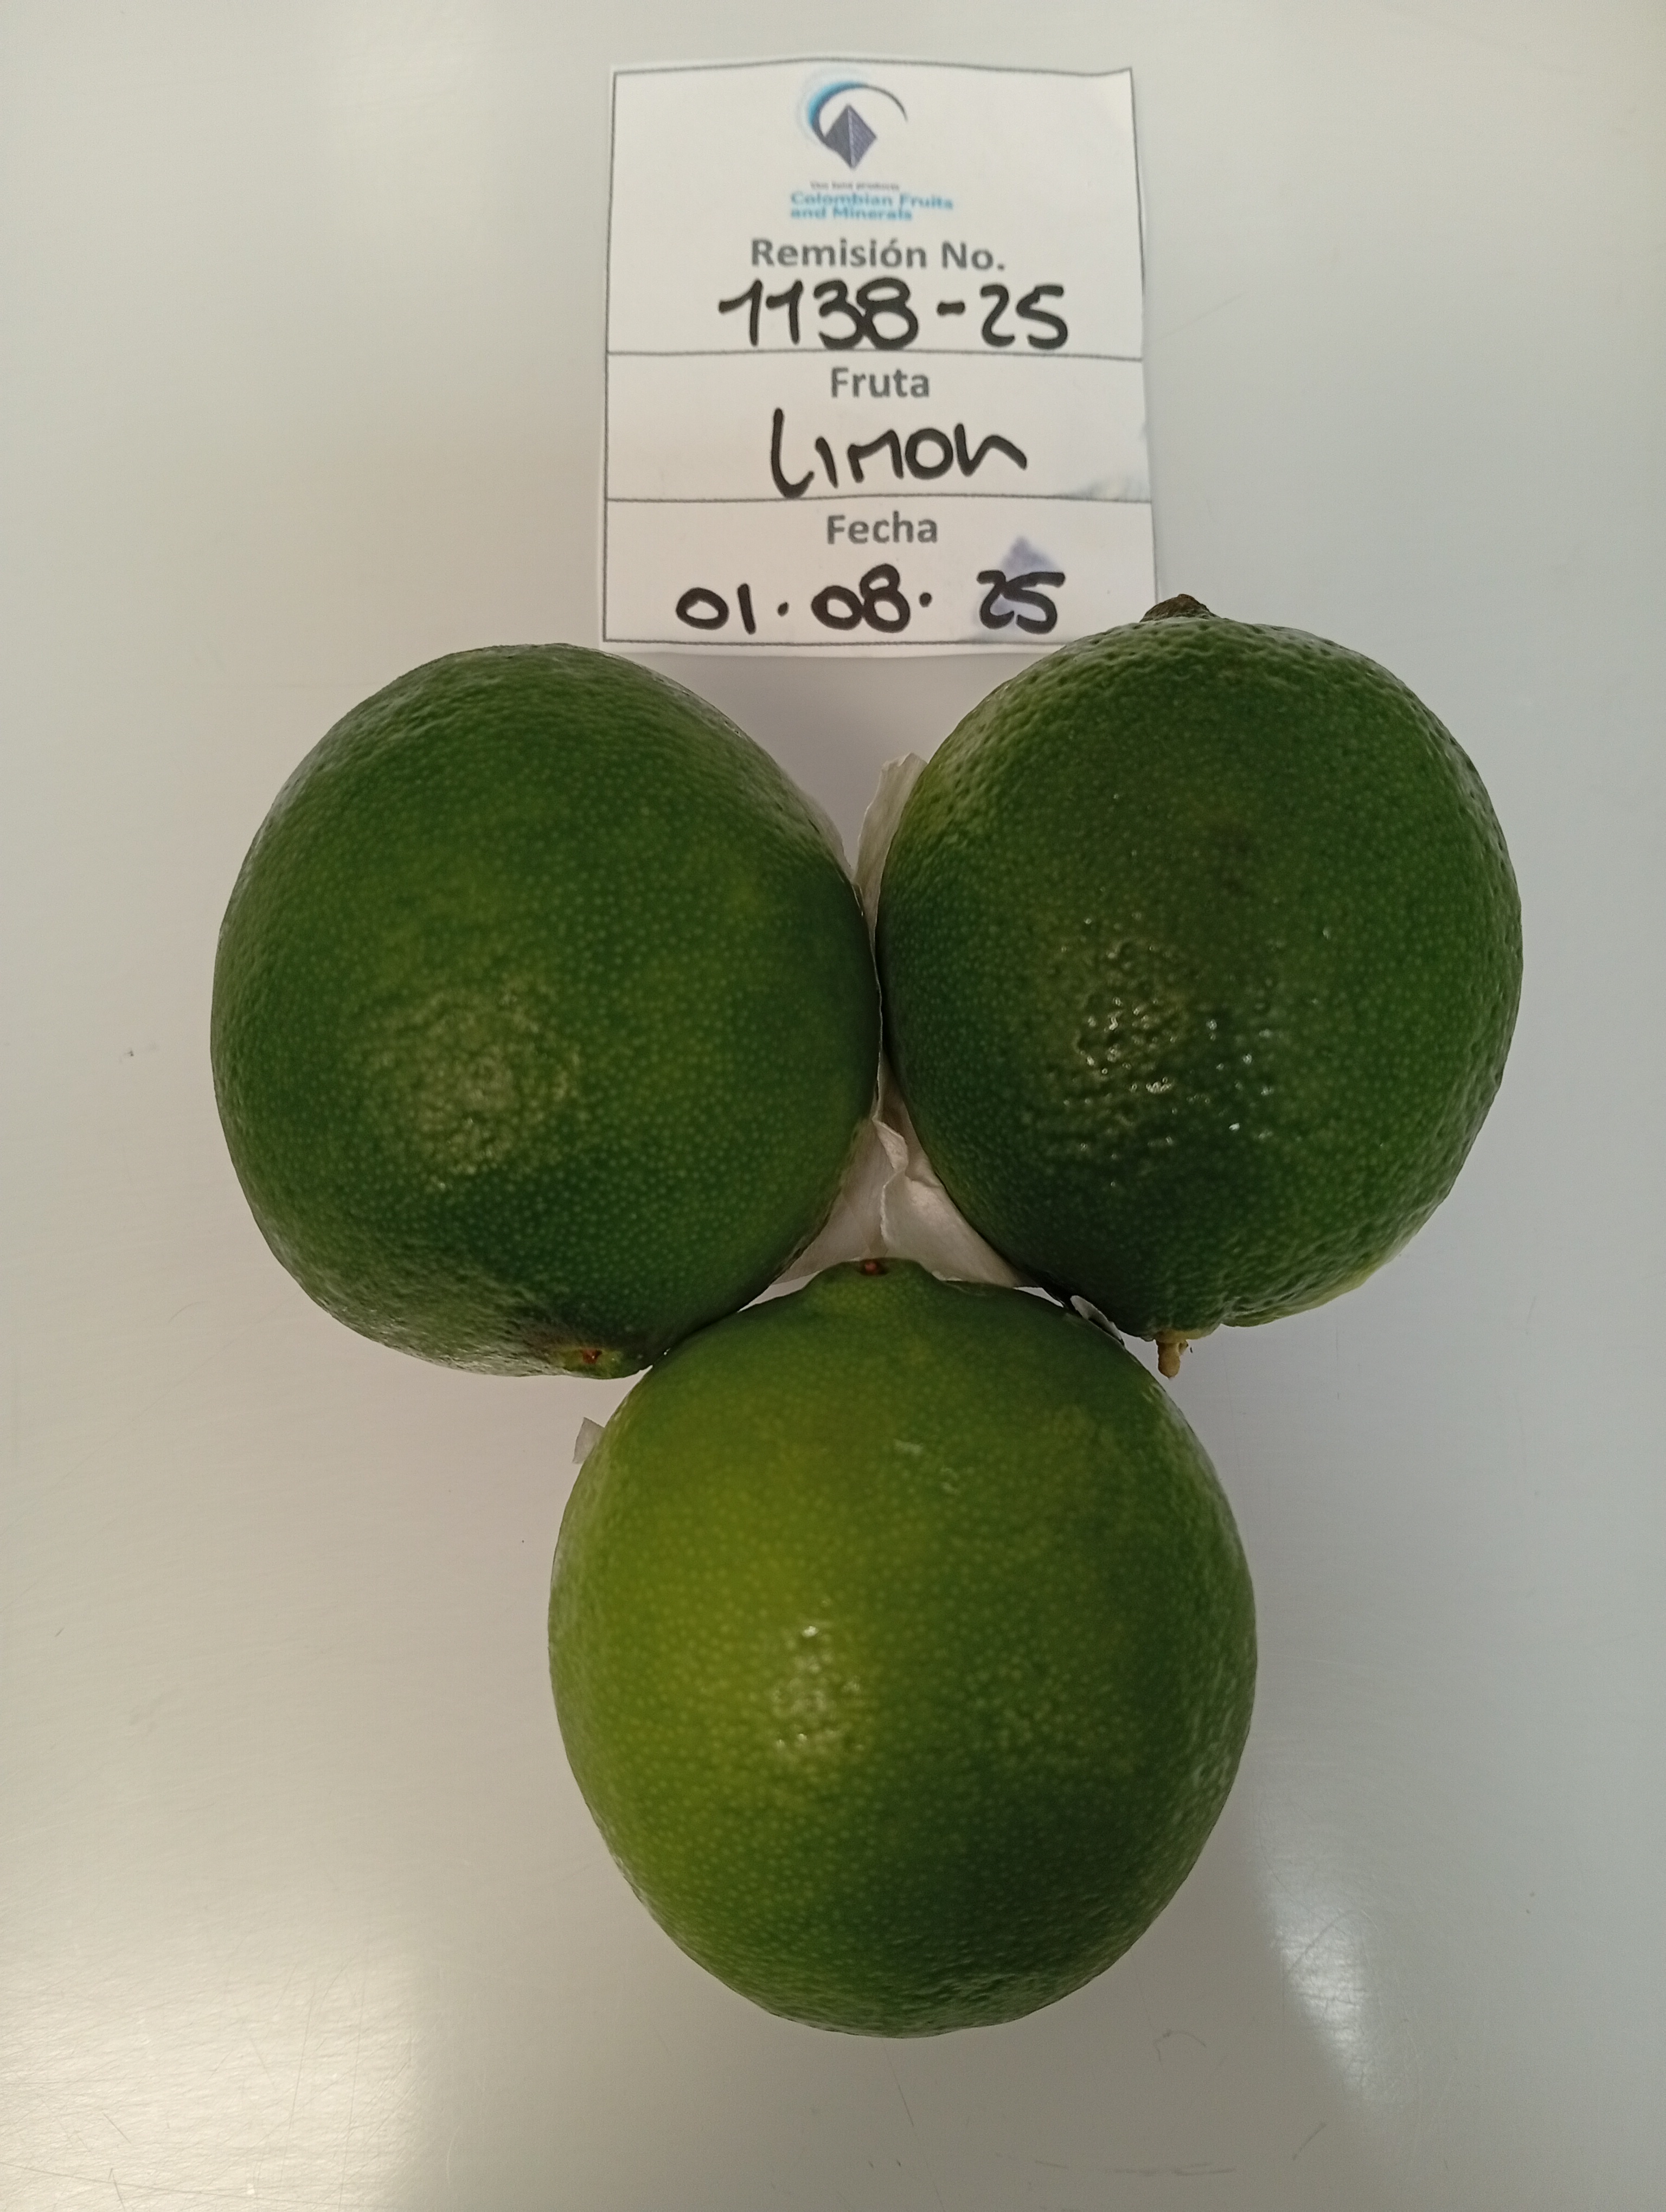 Colombian Fruits
and Minerals
Remisión No.
1138-25
Fruta
Limon
Fecha
01.08.25